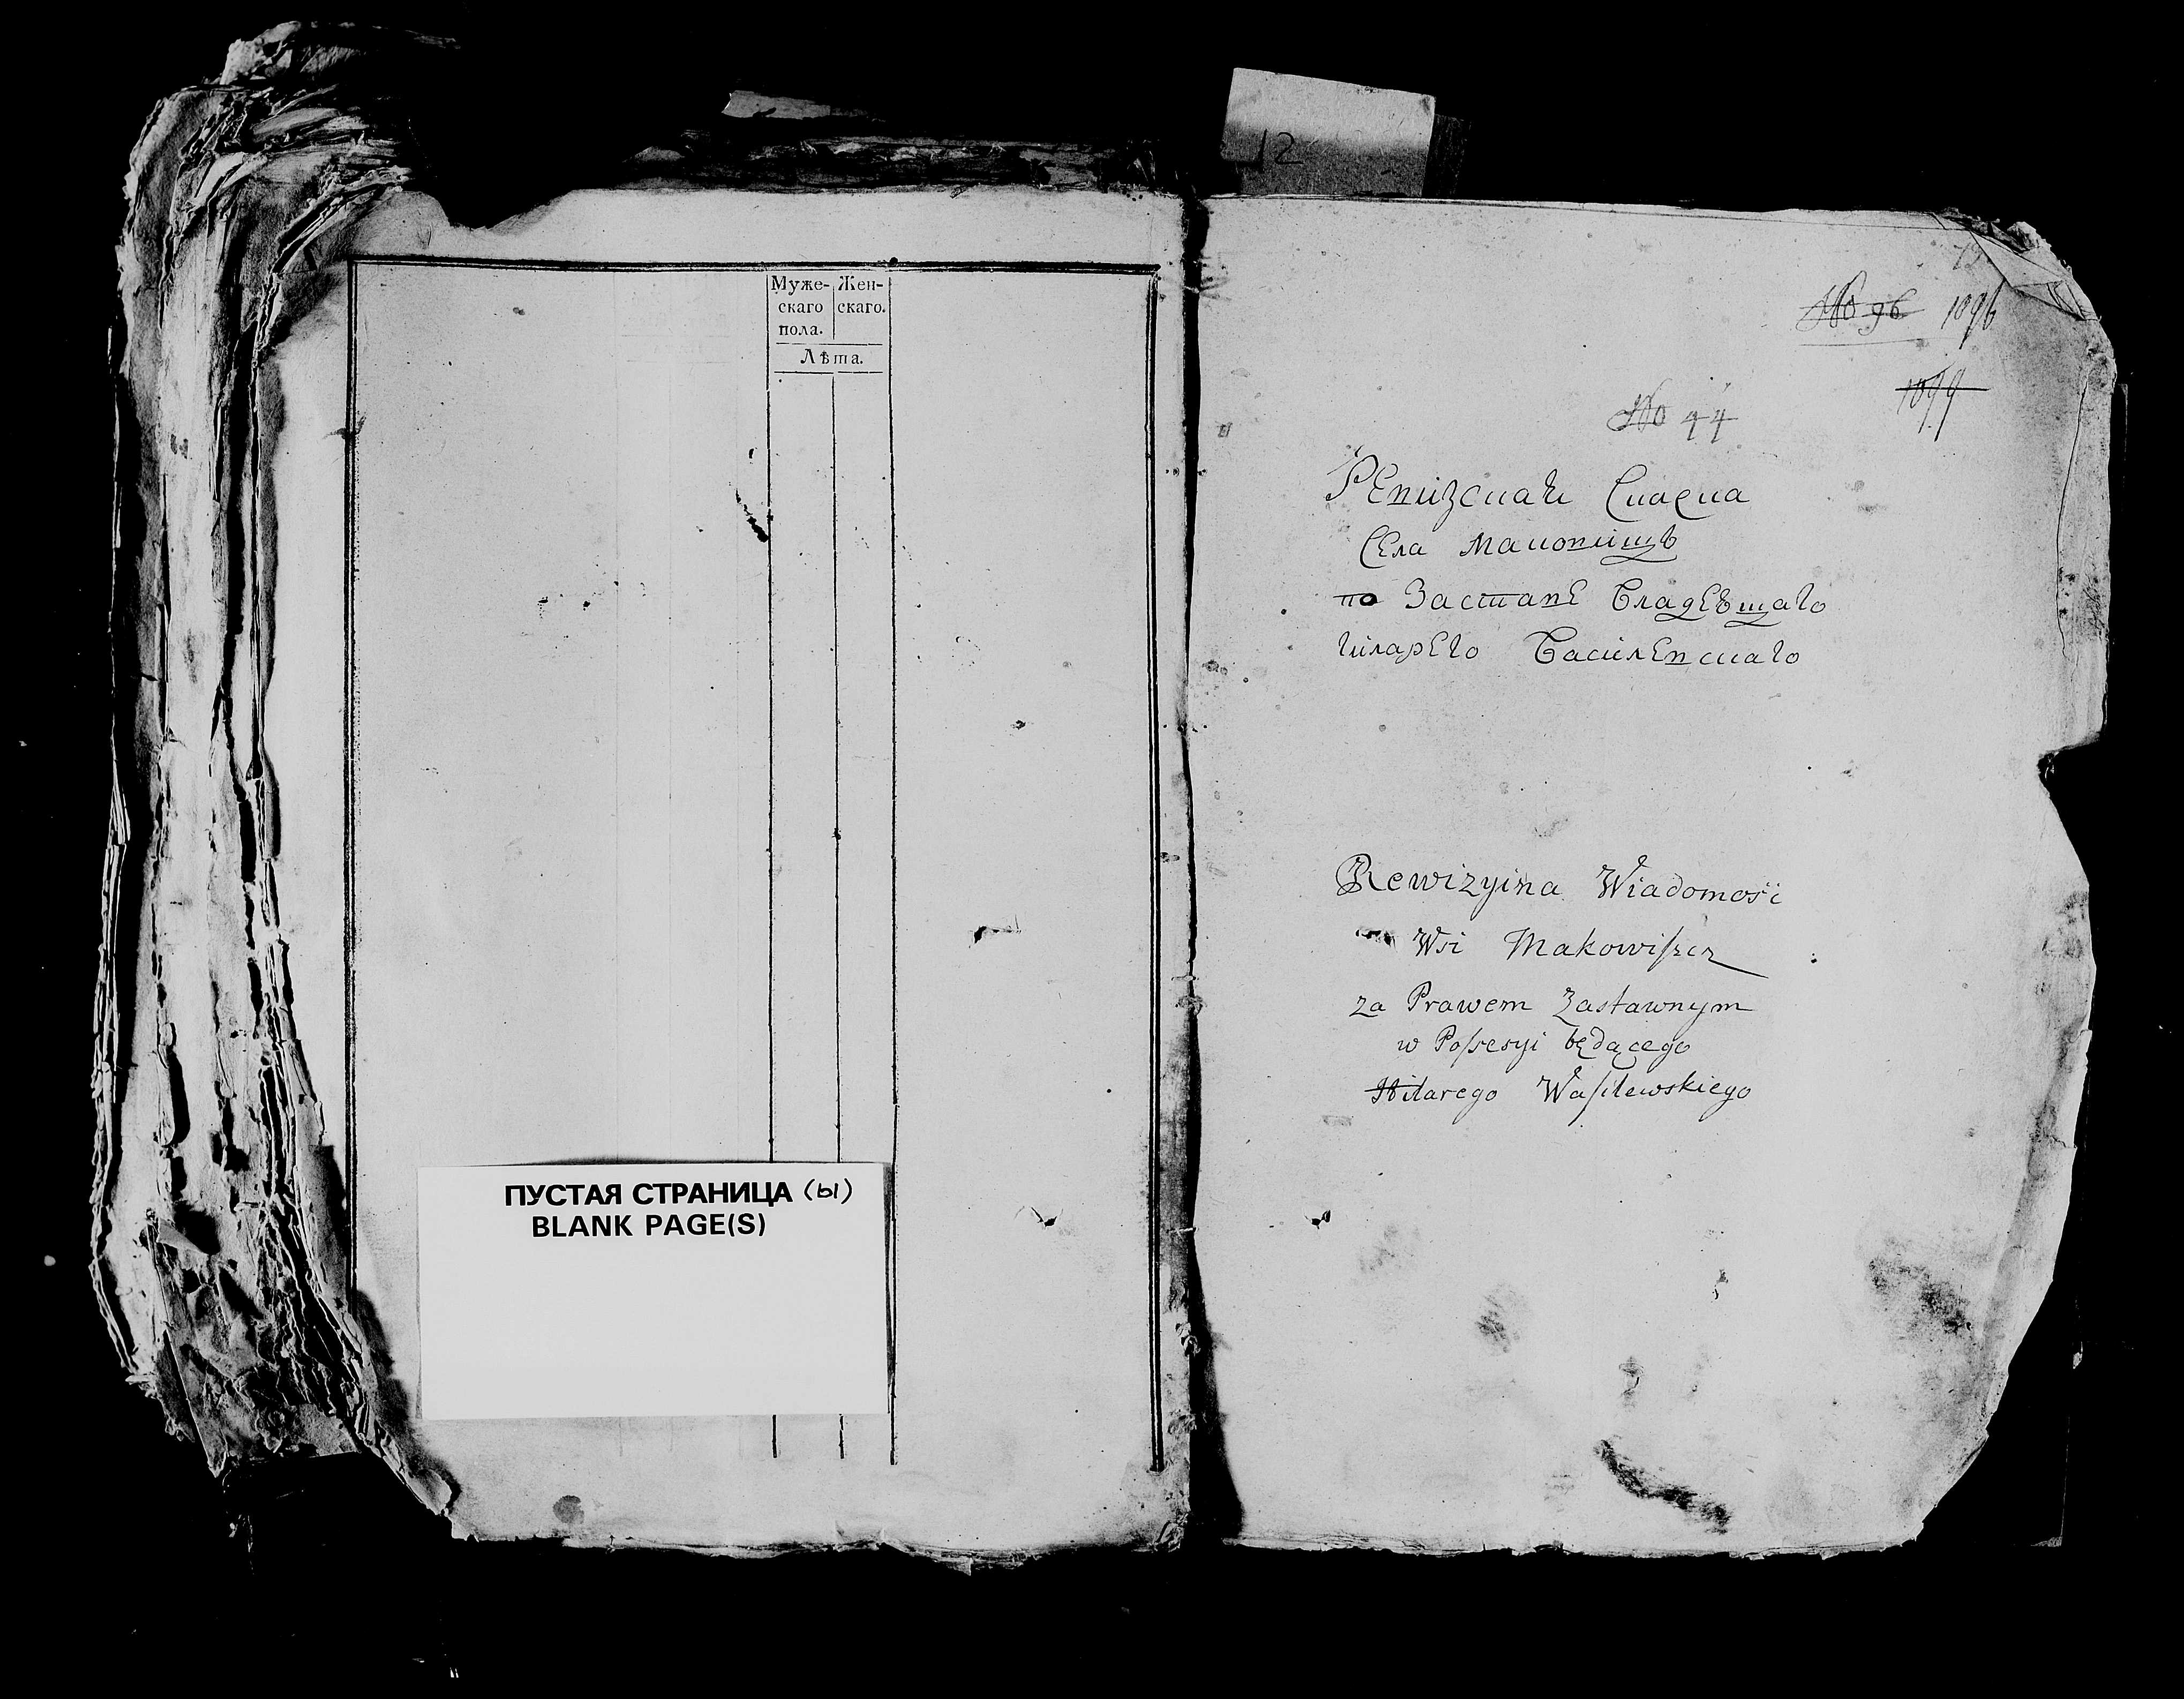 12
Муже-
скаго
пола.
Жен-
скаго.
Лѣта.
ПУСТАЯ СТРАНИЦА (ы)
BLANK PAGE(S)
No 96 1096
1099
No 44
Ревизскаѣ Скаска
Села Маковищъ
по Заставе Владеѣщаго
гиларего Василевскаго
Rewizyina Wiadomość
Wsi Makowiszcz
za Prawem Zastawnym
w Possesyi będącego
Hilarego Wasilewskiego